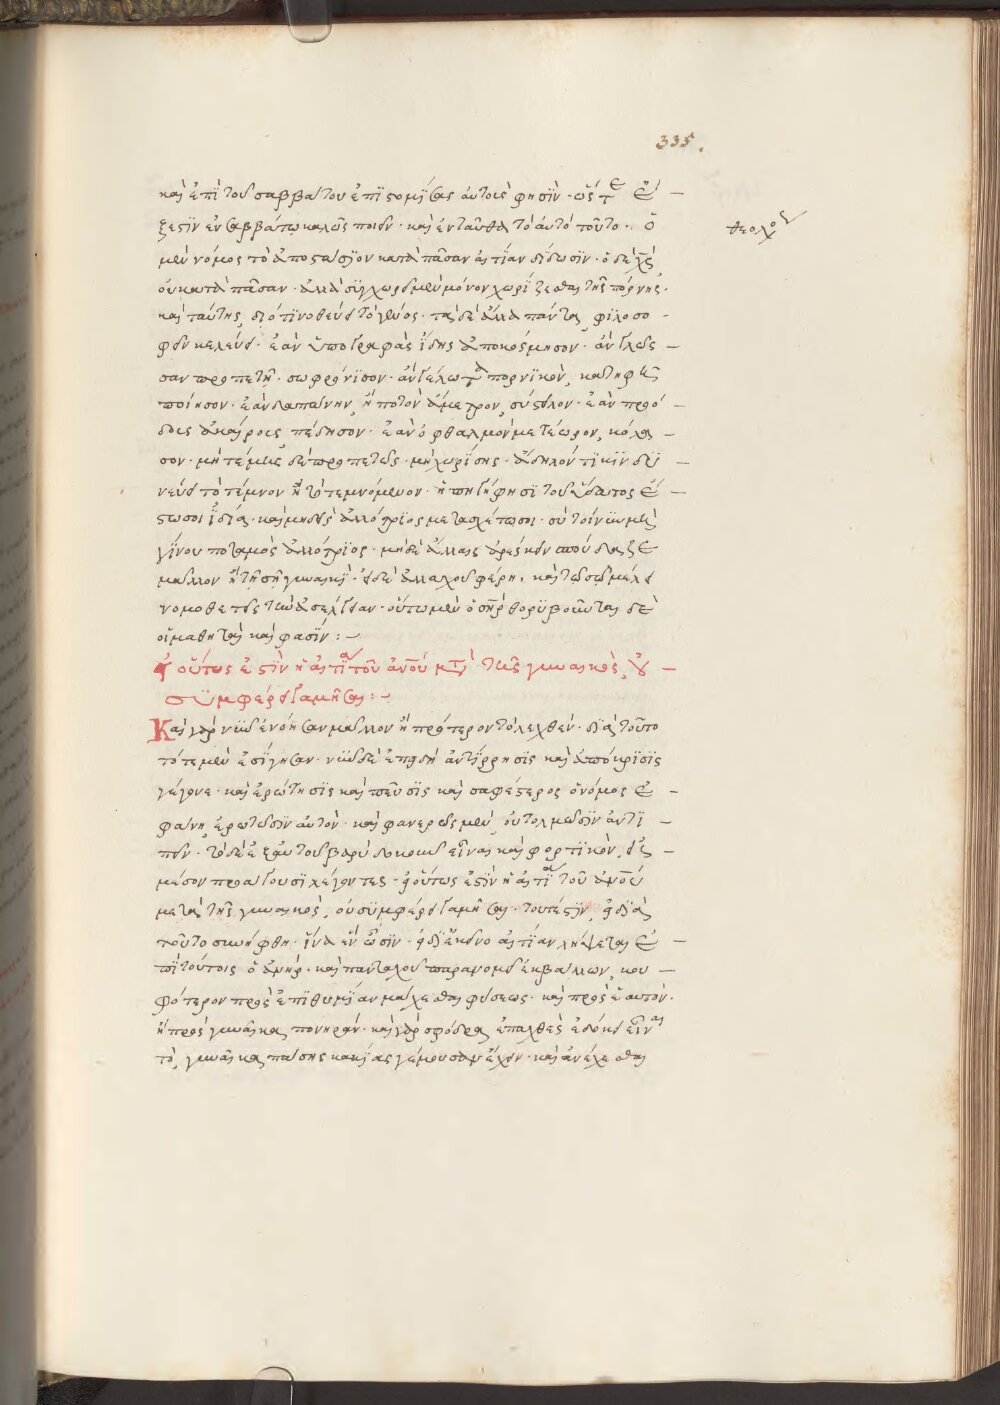 335.
καὶ ἐπὶ τοῦ σαββάτου ἐπιστομίσας αὐτοὺς φησίν· ὥστε ἔ
ξεστιν ἐν σαββάτω καλῶς ποιεῖν· καὶ ἐνταῦθα τὸ αὐτὸ τοῦτο. ὁ
θεολόγου
μὲν νόμος τὸ ἀποστάσιον κατὰ πᾶσαν αἰτίαν δίδωσιν· ὁ δὲ χς
οὐ κατὰ πᾶσαν· ἀλλὰ συγχωρεῖ μὲν μόνον χωρίζεσθαι τῆς πόρνης·
καὶ ταύτης, διότι νοθεύει τὸ γένος· τὰ δὲ ἄλλα πάντα, φιλοσο
φεῖν κελεύει· ἐὰν ὑπογραφὰς ἴδης ἀποκόσμησον· ἂν γλῶς
σαν προπετῆ· σωφρόνισον· ἂν γέλωτα πορνικὸν, κατηφῆ
ποίησον· ἐὰν δαπάνην, ἢ ποτὸν ἄμετρον, σύστειλον· ἐὰν προό
δους ἀκαίρους πέδησον· ἐὰν ὀφθαλμὸν μετέωρον, κόλα
σον· μὴ τέμης δὲ προπετῶς· μὴ χωρίσης· ἄδηλον τί κιν δυ
νεύει τὸ τέμνον ἢ τὸ τεμνόμενον· ἡ πηγή φησι τοῦ ὕδατος ἔ
στω σοι ἰδία· καὶ μηδεὶς ἀλλότριος μετασχέτω σοι· σὺ τοίνυν μὴ
γίνου ποταμὸς ἀλλότριος· μηδὲ ἄλλαις ἀρέσκειν σπούδαζε
μᾶλλον ἢ τῆ σῆ γυναικί· εἰ δὲ ἀλλαχοῦ φέρη, καὶ τῶ σῶ μέλει
νομοθετεῖς τὴν ἀσέλγειαν· οὕτω μὲν ὁ σηρ· θορυβοῦνται δὲ
οἱ μαθηταὶ καὶ φασίν:
εἰ οὕτως ἐστὶν ἡ αἰτία τοῦ ανου μετὰ τῆς γυναικὸς, οὐ
συμφέρει γαμῆσαι:
Καὶ γὰρ νῦν ἐνόησαν μᾶλλον ἢ πρότερον τὸ λεχθέν. διὰ τοῦτο
τότε μὲν ἐσίγησαν. νῦν δὲ ἐπειδὴ ἀντίρρησις καὶ ἀπόκρισις
γέγονε· καὶ ἐρώτησις καὶ πεῦσις καὶ σαφέστερος ὁ νόμος ἐ
φάνη, ἐρωτῶσιν αὐτὸν· καὶ φανερῶς μὲν οὐ τολμῶσιν ἀντει
πεῖν· τὸ δὲ ἐξ αὐτοῦ βαρὺ δοκοῦν εἶναι καὶ φορτικὸν, εἰς
μέσον προάγουσι λέγοντες· εἰ οὕτως ἐστὶν ἡ αἰτία τοῦ ανου
μετὰ τῆς γυναικὸς, οὐ συμφέρει γαμῆσαι· τουτέστιν, εἰ διὰ
τοῦτο συνήφθη· ἵνα ἓν ὦσιν· εἰ δι' ἐκεῖνο αἰτίαν λήψεται ἐ
πὶ τούτοις ὁ ἀνήρ· καὶ πανταχοῦ παρανομεῖ ἐκβάλλων, κου
φότερον πρὸς ἐπιθυμίαν μάχεσθαι φύσεως· καὶ πρὸς ἑαυτόν·
ἢ πρὸς γυναῖκα πονηράν· καὶ γὰρ σφόδρα ἐπαχθὲς ἐδόκει εἶναι
τὸ, γυναῖκα πάσης κακίας γέμουσαν ἔχειν· καὶ ἀνέχεσθαι